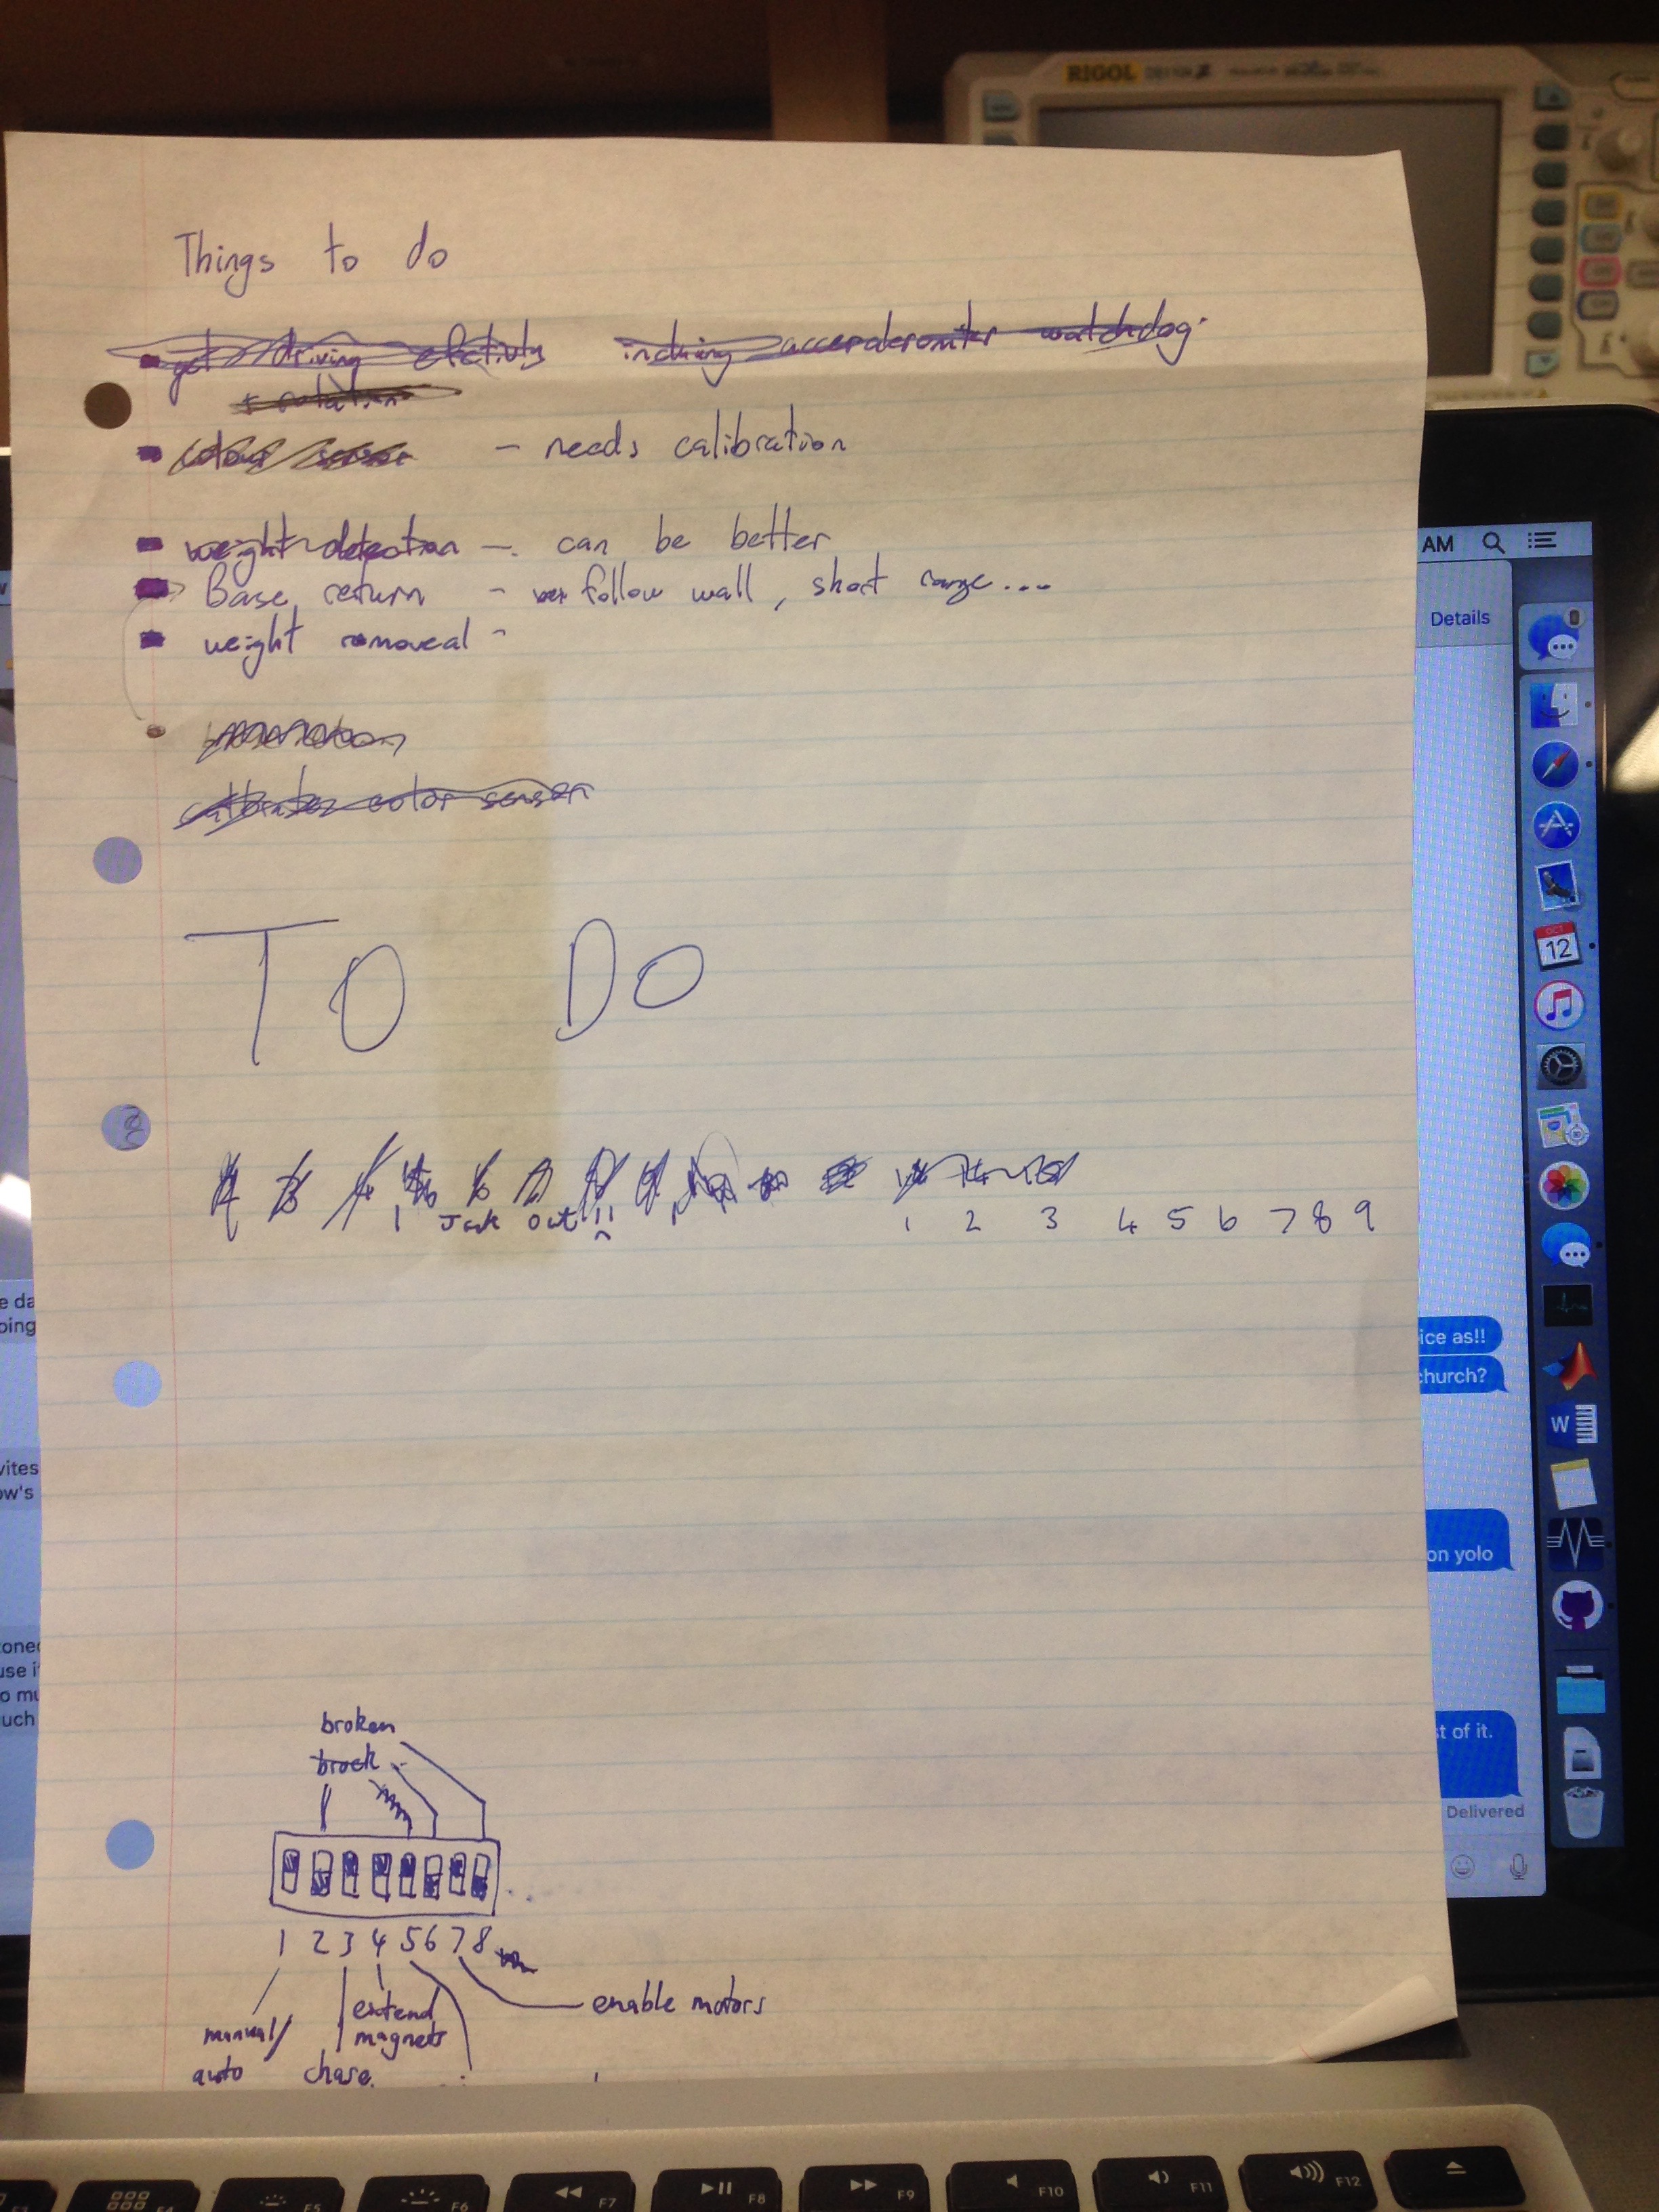 RIGOL
Things to do
get driving efectivly incluing acceraleromiter watchdog
+ rotation
colour sensor - needs calibration
weight detection - can be better
Base return - follow wall, short range...
weight removeal -
calibrate color sensor
TO DO
Jack out !!
1 2 3 4 5 6 7 8 9
broken
brock
1 2 3 4 5 6 7 8
enable motors
extend
magnets
manual/
auto
chase
AM
Details
OCT
12
ice as!!
church?
on yolo
t of it.
Delivered
e da
oing
vites
ow's
toned
use i
o mu
uch
W
F3 F4 F5 F6 F7 F8 F9 F10 F11 F12